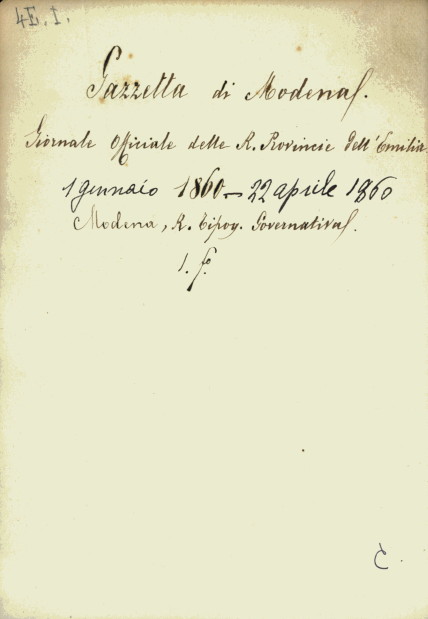 4E.I.
Gazzetta di Modena.
Giornale Officiale delle R. Provincie dell'Emilia
1 gennaio 1860 - 22 aprile 1860
Modena, R. Tipog. Governativa.
1. fo.
C.